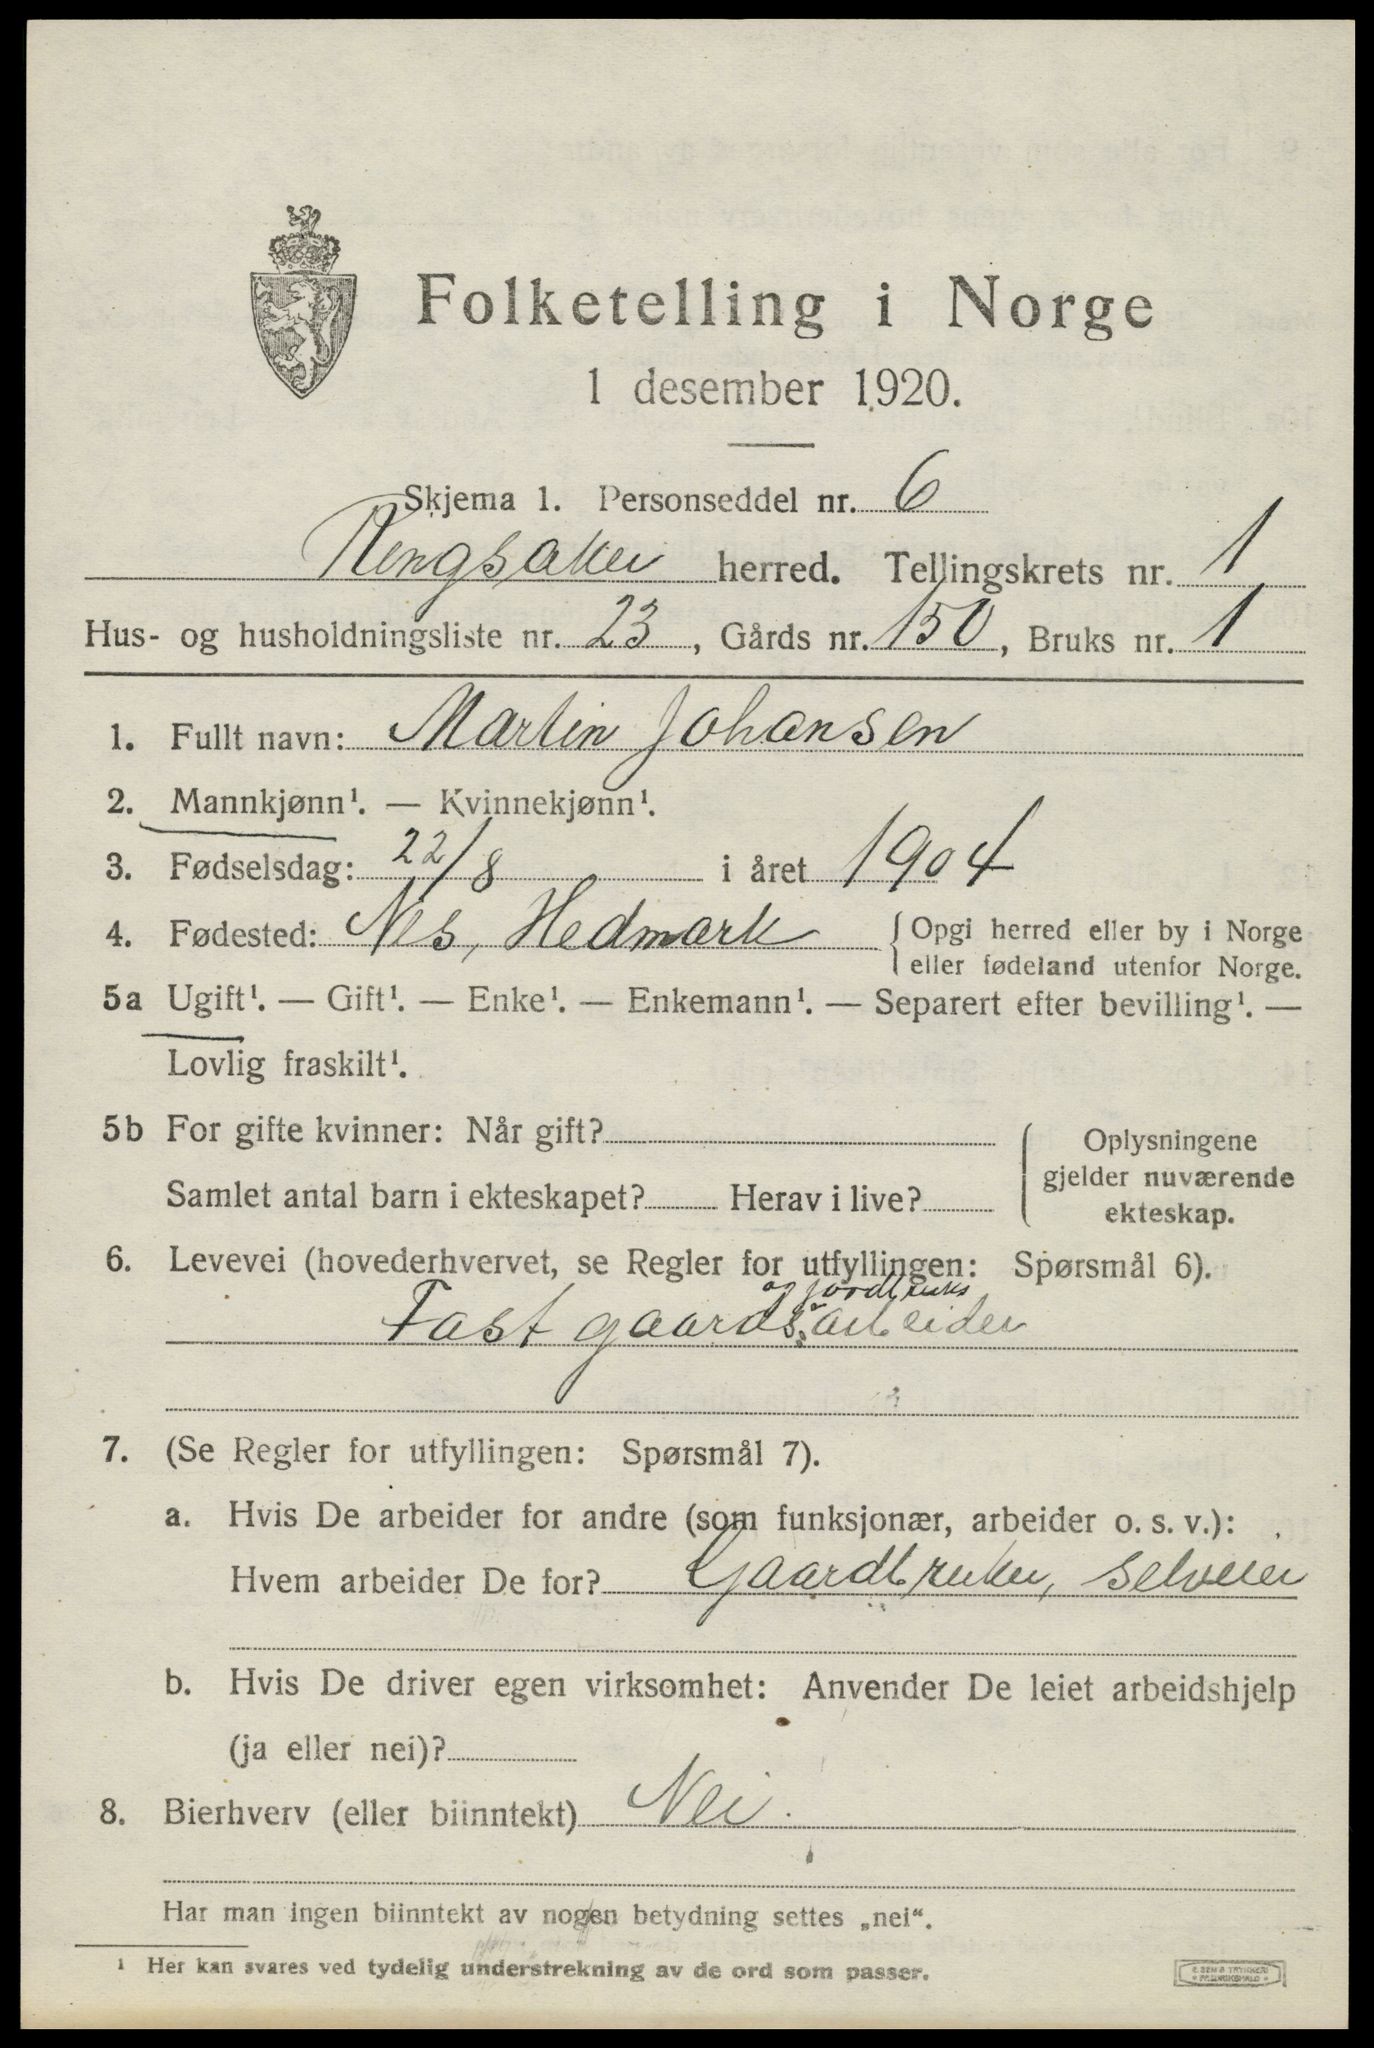 Folketelling i Norge
1 desember 1920.
Skjema 1. Personseddel nr. 6
Ringsaker herred. Tellingskrets nr. 1
Hus- og husholdningsliste nr. 23, Gårds nr. 150, Bruks nr. 1
1. Fullt navn: Martin Johansen
2. Mannkjønn¹. — Kvinnekjønn¹.
3. Fødselsdag: 22/8 i året 1904
4. Fødested: Nes, Hedmark { Opgi herred eller by i Norge
eller fødeland utenfor Norge.
5a Ugift¹. — Gift¹. — Enke¹. — Enkemann¹. — Separert efter bevilling¹. —
Lovlig fraskilt¹.
5b For gifte kvinner: Når gift? { Oplysningene
gjelder nuværende
Samlet antal barn i ekteskapet? Herav i live? ekteskap.
6. Levevei (hovederhvervet, se Regler for utfyllingen: Spørsmål 6).
og jordbruks
Fast gaards arbeider
7. (Se Regler for utfyllingen: Spørsmål 7).
a. Hvis De arbeider for andre (som funksjonær, arbeider o. s. v.):
Hvem arbeider De for? Gaardbruker, selveier
b. Hvis De driver egen virksomhet: Anvender De leiet arbeidshjelp
(ja eller nei)?
8. Bierhverv (eller biinntekt) Nei.
Har man ingen biinntekt av nogen betydning settes „nei“.
¹ Her kan svares ved tydelig understrekning av de ord som passer.